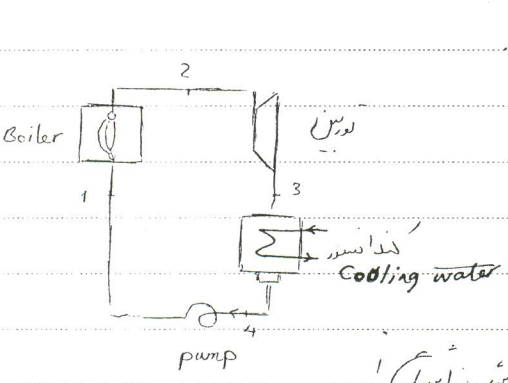 2
Boiler
توربین
1
3
کندانسور
Cooling water
4
pump